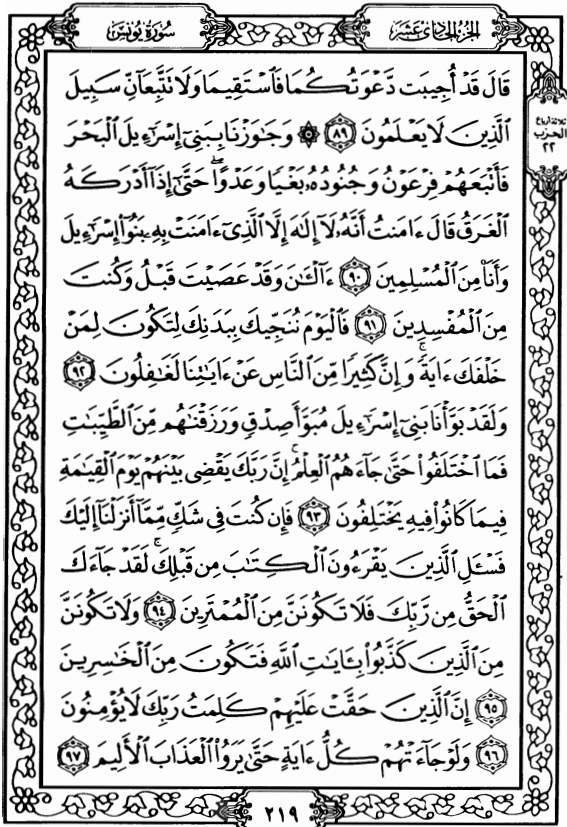 الجزء الحادى عشر
سورة يونس
ثلاثة أرباع
الحزب
٢٢
قَالَ قَدْ أُجِيبَت دَّعْوَتُكُمَا فَٱسْتَقِيمَا وَلَا تَتَّبِعَآنِّ سَبِيلَ
ٱلَّذِينَ لَا يَعْلَمُونَ ٨٩ ۞ وَجَٰوَزْنَا بِبَنِىٓ إِسْرَٰٓءِيلَ ٱلْبَحْرَ
فَأَتْبَعَهُمْ فِرْعَوْنُ وَجُنُودُهُۥ بَغْيًا وَعَدْوًا ۖ حَتَّىٰٓ إِذَآ أَدْرَكَهُ
ٱلْغَرَقُ قَالَ ءَامَنتُ أَنَّهُۥ لَآ إِلَٰهَ إِلَّا ٱلَّذِىٓ ءَامَنَتْ بِهِۦ بَنُوٓا۟ إِسْرَٰٓءِيلَ
وَأَنَا۠ مِنَ ٱلْمُسْلِمِينَ ٩٠ ءَآلْـَٰٔنَ وَقَدْ عَصَيْتَ قَبْلُ وَكُنتَ
مِنَ ٱلْمُفْسِدِينَ ٩١ فَٱلْيَوْمَ نُنَجِّيكَ بِبَدَنِكَ لِتَكُونَ لِمَنْ
خَلْفَكَ ءَايَةً ۚ وَإِنَّ كَثِيرًا مِّنَ ٱلنَّاسِ عَنْ ءَايَٰتِنَا لَغَٰفِلُونَ ٩٢
وَلَقَدْ بَوَّأْنَا بَنِىٓ إِسْرَٰٓءِيلَ مُبَوَّأَ صِدْقٍ وَرَزَقْنَٰهُم مِّنَ ٱلطَّيِّبَٰتِ
فَمَا ٱخْتَلَفُوا۟ حَتَّىٰ جَآءَهُمُ ٱلْعِلْمُ ۚ إِنَّ رَبَّكَ يَقْضِى بَيْنَهُمْ يَوْمَ ٱلْقِيَٰمَةِ
فِيمَا كَانُوا۟ فِيهِ يَخْتَلِفُونَ ٩٣ فَإِن كُنتَ فِى شَكٍّ مِّمَّآ أَنزَلْنَآ إِلَيْكَ
فَسْـَٔلِ ٱلَّذِينَ يَقْرَءُونَ ٱلْكِتَٰبَ مِن قَبْلِكَ ۚ لَقَدْ جَآءَكَ
ٱلْحَقُّ مِن رَّبِّكَ فَلَا تَكُونَنَّ مِنَ ٱلْمُمْتَرِينَ ٩٤ وَلَا تَكُونَنَّ
مِنَ ٱلَّذِينَ كَذَّبُوا۟ بِـَٔايَٰتِ ٱللَّهِ فَتَكُونَ مِنَ ٱلْخَٰسِرِينَ
٩٥ إِنَّ ٱلَّذِينَ حَقَّتْ عَلَيْهِمْ كَلِمَتُ رَبِّكَ لَا يُؤْمِنُونَ
٩٦ وَلَوْ جَآءَتْهُمْ كُلُّ ءَايَةٍ حَتَّىٰ يَرَوُا۟ ٱلْعَذَابَ ٱلْأَلِيمَ ٩٧
٢١٩